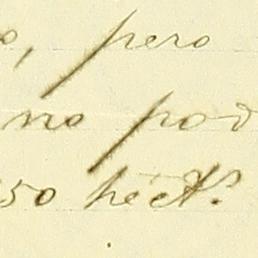 o, pero
no pod
50 héct.ˢ